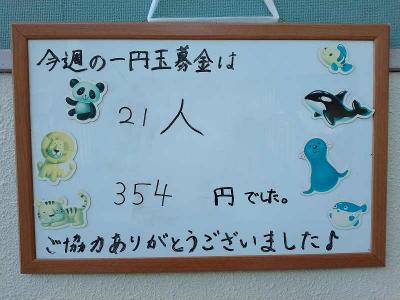 今週の一円玉募金は
21人
354 円でした。
ご協力ありがとうございました♪